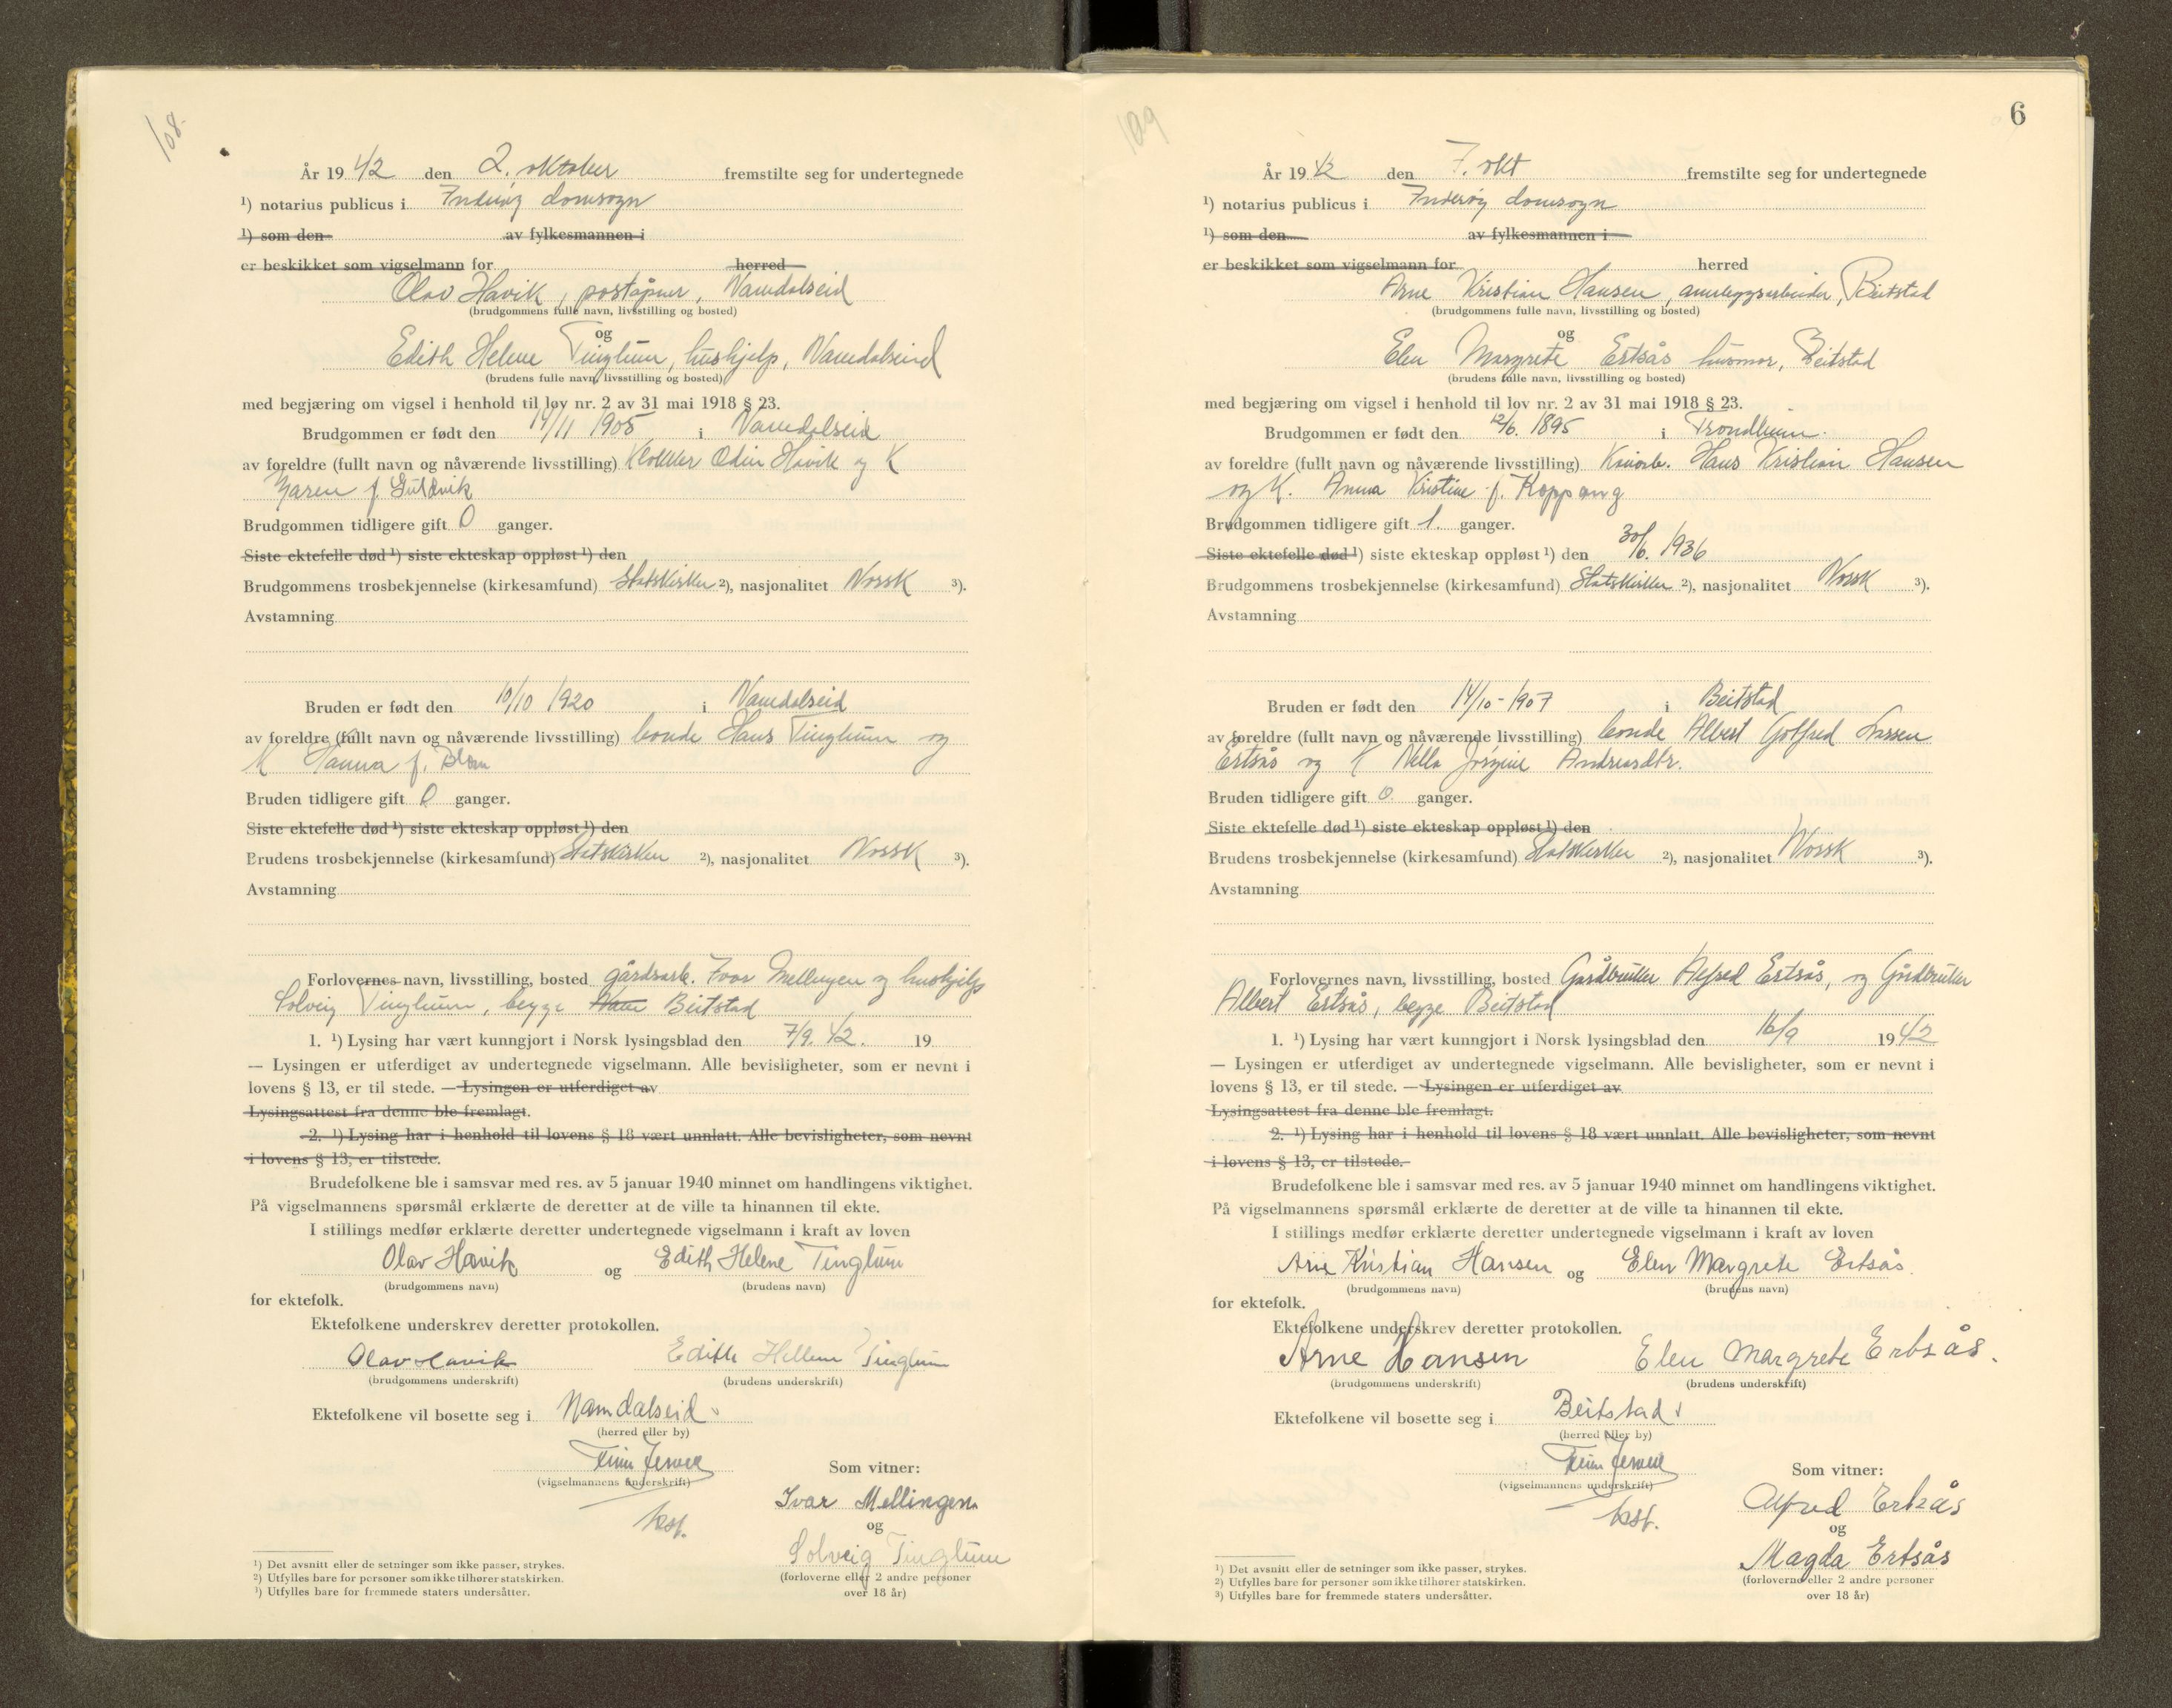 108.
År 19 42 den 2. oktober fremstilte seg for undertegnede
¹) notarius publicus i Inderøy domsogn
¹) som den av fylkesmannen i
er beskikket som vigselmann for herred
Olav Havik, poståpner, Namdalseid
(brudgommens fulle navn, livsstilling og bosted)
og
Edith Helene Tinglum, hushjelp, Namdalseid
(brudens fulle navn, livsstilling og bosted)
med begjæring om vigsel i henhold til lov nr. 2 av 31 mai 1918 § 23.
Brudgommen er født den 14/11 1905 i Namdalseid
av foreldre (fullt navn og nåværende livsstilling) Klokker Odin Havik og K
Karen f.
Brudgommen tidligere gift 0 ganger.
Siste ektefelle død ¹) siste ekteskap oppløst ¹) den
Brudgommens trosbekjennelse (kirkesamfund) Statskirken ²), nasjonalitet Norsk ³).
Avstamning
Bruden er født den 10/10 1920 i Namdalseid
av foreldre (fullt navn og nåværende livsstilling) bonde Hans Tinglum og
K Hanna f.
Bruden tidligere gift 0 ganger.
Siste ektefelle død ¹) siste ekteskap oppløst ¹) den
Brudens trosbekjennelse (kirkesamfund) Statskirken ²), nasjonalitet Norsk ³).
Avstamning
Forlovernes navn, livsstilling, bosted gårdsarb. Ivar Mellingen og hushjelp
Solveig Tinglum, begge Beitstad
1. ¹) Lysing har vært kunngjort i Norsk lysingsblad den 7/9. 42. 19
— Lysingen er utferdiget av undertegnede vigselmann. Alle bevisligheter, som er nevnt i
lovens § 13, er til stede. — Lysingen er utferdiget av
Lysingsattest fra denne ble fremlagt.
2. ¹) Lysing har i henhold til lovens § 18 vært unnlatt. Alle bevisligheter, som nevnt
i lovens § 13, er tilstede.
Brudefolkene ble i samsvar med res. av 5 januar 1940 minnet om handlingens viktighet.
På vigselmannens spørsmål erklærte de deretter at de ville ta hinannen til ekte.
I stillings medfør erklærte deretter undertegnede vigselmann i kraft av loven
Olav Havik og Edith Helene Tinglum
(brudgommens navn) (brudens navn)
for ektefolk.
Ektefolkene underskrev deretter protokollen.
Olav Havik Edith Hellene Tinglum
(brudgommens underskrift) (brudens underskrift)
Ektefolkene vil bosette seg i Namdalseid
(herred eller by)
(vigselmannens underskrift)
Som vitner:
Ivar Mellingen
og
Solveig Tinglum
(forloverne eller 2 andre personer
over 18 år)
¹) Det avsnitt eller de setninger som ikke passer, strykes.
²) Utfylles bare for personer som ikke tilhører statskirken.
³) Utfylles bare for fremmede staters undersåtter.
109
6
År 19 42 den 7. okt fremstilte seg for undertegnede
¹) notarius publicus i Inderøy domsogn
¹) som den av fylkesmannen i
er beskikket som vigselmann for herred
Arne Kristian Hansen, anleggsarbeider, Beitstad
(brudgommens fulle navn, livsstilling og bosted)
og
Elen Margrete Ertsås husmor, Beitstad
(brudens fulle navn, livsstilling og bosted)
med begjæring om vigsel i henhold til lov nr. 2 av 31 mai 1918 § 23.
Brudgommen er født den 12/6. 1895 i Trondheim.
av foreldre (fullt navn og nåværende livsstilling) Hans Kristian Hansen
og K. Anna Kristine f. Koppang
Brudgommen tidligere gift 1. ganger.
Siste ektefelle død ¹) siste ekteskap oppløst ¹) den 30/6. 1936
Brudgommens trosbekjennelse (kirkesamfund) Statskirken ²), nasjonalitet Norsk ³).
Avstamning
Bruden er født den 14/10 - 1907 i Beitstad
av foreldre (fullt navn og nåværende livsstilling) bonde Albert Gotfred Larsen
Ertsås og K Nella Jørgine Andreasdtr.
Bruden tidligere gift 0. ganger.
Siste ektefelle død ¹) siste ekteskap oppløst ¹) den
Brudens trosbekjennelse (kirkesamfund) Statskirken ²), nasjonalitet Norsk ³).
Avstamning
Forlovernes navn, livsstilling, bosted Gårdbruker Alfred Ertsås, og Gårdbruker
Albert Ertsås, begge Beitstad
1. ¹) Lysing har vært kunngjort i Norsk lysingsblad den 16/9 19 42
— Lysingen er utferdiget av undertegnede vigselmann. Alle bevisligheter, som er nevnt i
lovens § 13, er til stede. — Lysingen er utferdiget av
Lysingsattest fra denne ble fremlagt.
2. ¹) Lysing har i henhold til lovens § 18 vært unnlatt. Alle bevisligheter, som nevnt
i lovens § 13, er tilstede.
Brudefolkene ble i samsvar med res. av 5 januar 1940 minnet om handlingens viktighet.
På vigselmannens spørsmål erklærte de deretter at de ville ta hinannen til ekte.
I stillings medfør erklærte deretter undertegnede vigselmann i kraft av loven
Arne Kristian Hansen og Elen Margrete Ertsås.
(brudgommens navn) (brudens navn)
for ektefolk.
Ektefolkene underskrev deretter protokollen.
Arne Hansen Elen Margrete Ertsås.
(brudgommens underskrift) (brudens underskrift)
Ektefolkene vil bosette seg i Beitstad
(herred eller by)
(vigselmannens underskrift)
Som vitner:
Alfred Ertsås
og
Magda Ertsås
(forloverne eller 2 andre personer
over 18 år)
¹) Det avsnitt eller de setninger som ikke passer, strykes.
²) Utfylles bare for personer som ikke tilhører statskirken.
³) Utfylles bare for fremmede staters undersåtter.